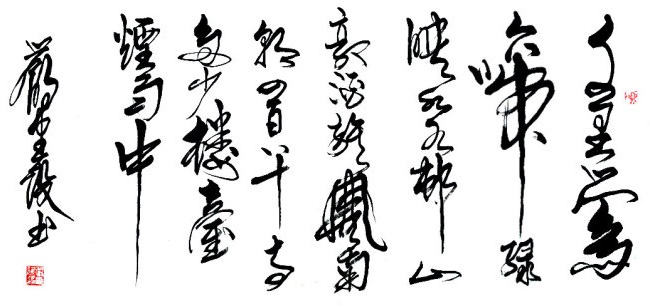 千里鶯
啼綠
映紅水村山
郭酒旗風南
朝四百八十寺
多少樓臺
煙雨中